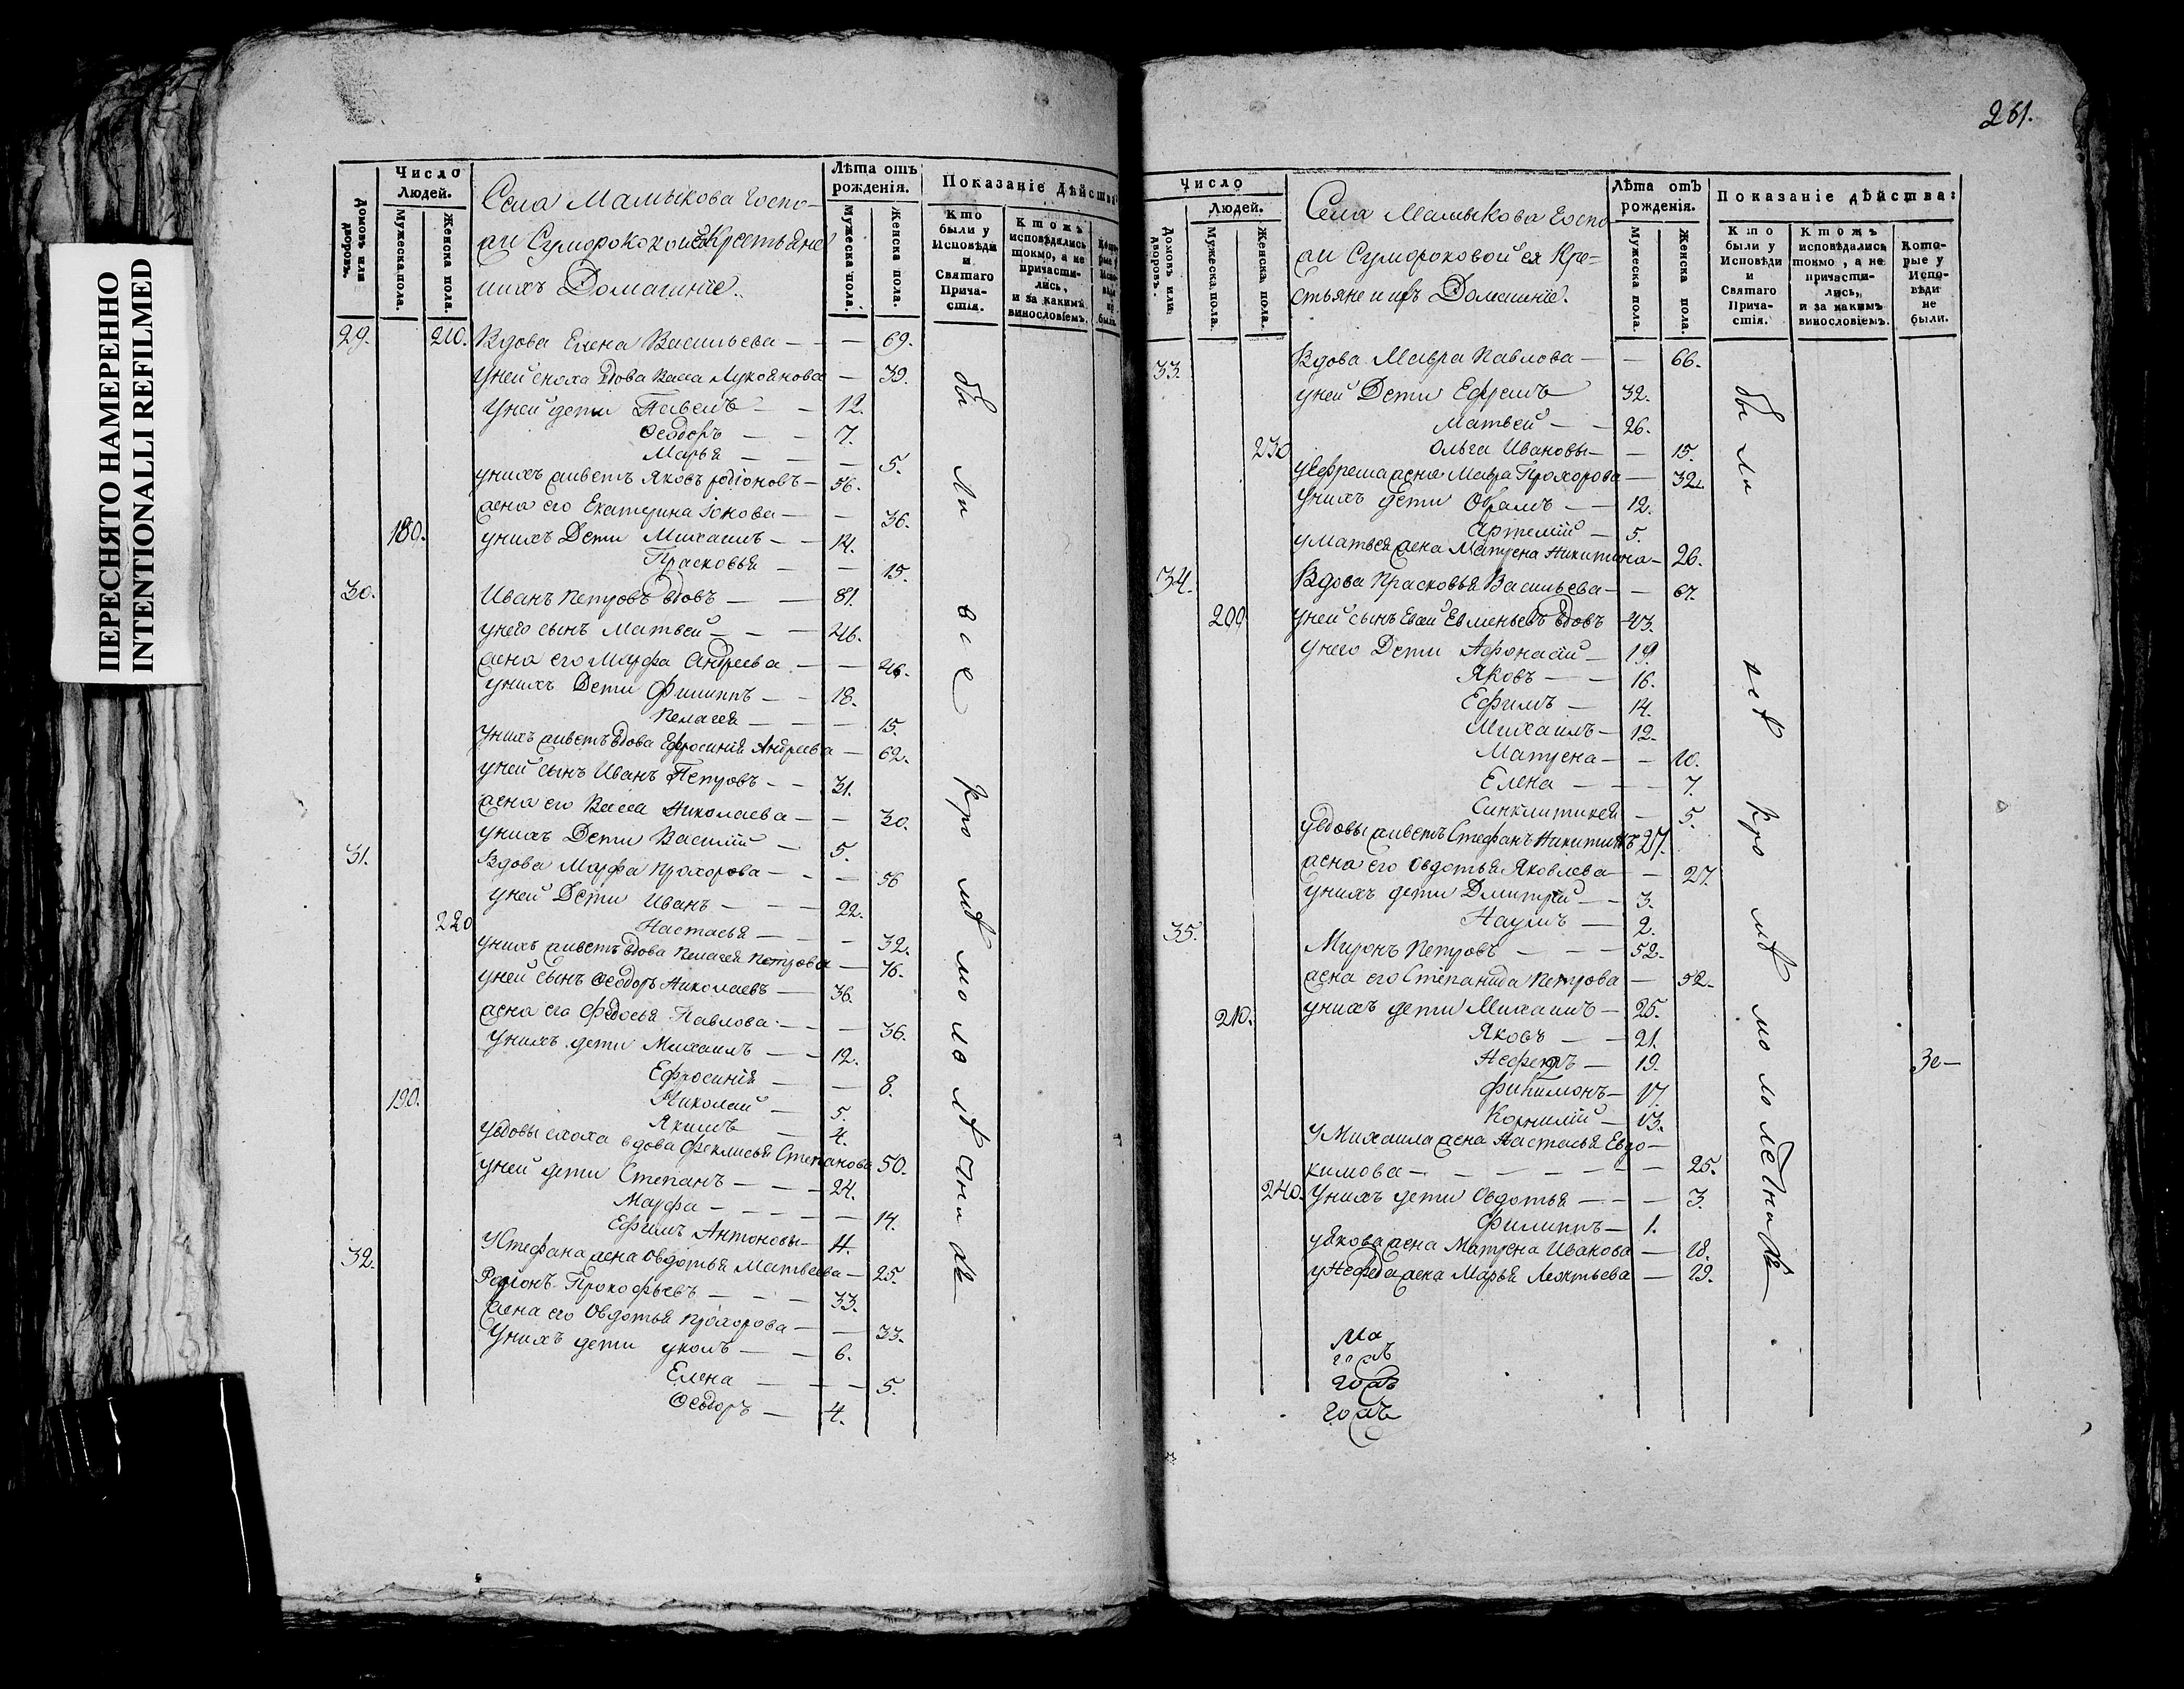 ПЕРЕСНЯТО НАМЕРЕННО
INTENTIONALLI REFILMED
Домовъ или дворовъ.
Число Людей.
Мужеска пола.
Женска пола.
Села Малыкова госпо-
жи Сумороковой Крестьяне
ихъ Домашние.
Лѣта отъ рожденія.
Мужеска пола.
Женска пола.
Показаніе дѣйства
Кто были у Исповѣди и Святаго Прича-стія.
Ктожъ исповѣдались токмо, а не причасти-лись, и за какимъ винословіемъ.
29. 210. Вдова Елена Васильева — — 69.
Уней сноха вдова Васса Лукоянова — 39.
Уней дети Павелъ — — 12.
Ѳеодоръ — — 7.
Марья — — — 5.
унихъ живетъ Яковъ родіоновъ — 56.
жена его Екатерина Іонова — — 36.
180. унихъ Дети Михаилъ — — 14.
Прасковья — — 15.
30. Иванъ Петровъ вдовъ — — 81.
унего сынъ Матвей — — — 46.
жена его Марфа Андреева — — 46.
унихъ Дети Филиппъ — — 18.
Пелагея — — — 15.
Унихъ живетъ вдова Ефросинія Андреева — 62.
уней сынъ Иванъ Петровъ — — 31.
жена его Васса Николаева — — 30.
унихъ Дети Василий — 5.
31. Вдова Марфа Прохорова — — — 56
уней Дети Иванъ — — — 22.
220 Настасья — — — 32.
унихъ живетъ вдова Пелагея Петрова — 76.
уней сынъ Ѳеодоръ Николаевъ — 36.
жена его Федосья Павлова — — — 36.
Унихъ дети Михаилъ — — 12.
Ефросинія — — 8.
190. Николай — 5.
Якимъ — 4.
Увдовы сноха вдова Феклисья Степанова 50.
уней дети Степанъ — — — 24.
Марфа — — — — — 14.
Ефимъ Антоновы — 11.
УСтефана жена Овдотья Матвеева — 25.
32. Родіонъ Прокофьевъ — — — 33.
жена его Овдотья Прохорова — — 33.
Унихъ дети — — 6.
Елена — — — 5.
Ѳеодоръ — 4.
бы ли все кромѣ мололѣтнихъ
261.
Число Людей.
Домовъ или дворовъ.
Мужеска пола.
Женска пола.
Села Малыкова Госпо
жи Сумороковой ея Кре=
стьяне и ихъ Домашніе.
Лѣта отъ рожденія.
Мужеска пола.
Женска пола.
Показаніе дѣйства:
Кто были у Исповѣди и Святаго Прича-стія.
Ктожъ исповѣдались токмо, а не причасти-лись, и за какимъ винословіемъ.
Кото-рые у Испо-вѣди не были.
33. Вдова Мавра Павлова — — 66.
уней Дети Ефремъ 32.
Матвей — — 26.
230 Ольга Ивановы — — 15.
уЕфрема жена Мавра Прохорова — 32.
Унихъ дети — — 12.
Артемій — 5.
уматвея жена Матрена Никитина — 26.
34. Вдова Прасковья Васильева — — 67.
200 Уней сынъ Евсей Евменьевъ вдовъ — 43.
Унего Дети Афонасій — 19.
Яковъ — — 16.
Ефимъ — 14.
Михаилъ — 12.
Матрена — — 10.
Елена — — — 7.
Синклитикея — 5.
увдовы живетъ Стефанъ Никитинъ 27.
жена его Овдотья Яковлева — — 27.
унихъ дети Дмитрей — — 3.
Наумъ — 2.
35. Миронъ Петровъ — — — 52.
жена его Степанида Петрова — 52.
210. унихъ дети Михаилъ — 25.
Яковъ — — 21.
Нефедъ — 19. Зе—
Филимонъ — 17.
Корнилій — 13.
У Михаила жена Настасья Евдо-
кимова — — — — — — — 25.
240. Унихъ дети Овдотья — — — 3.
Филиппъ — 1.
уякова жена Матрена Иванова — 18.
уНефеда жена Марья Леонтьева — 19.
бы ли всѣ кромѣ мололетнихъ